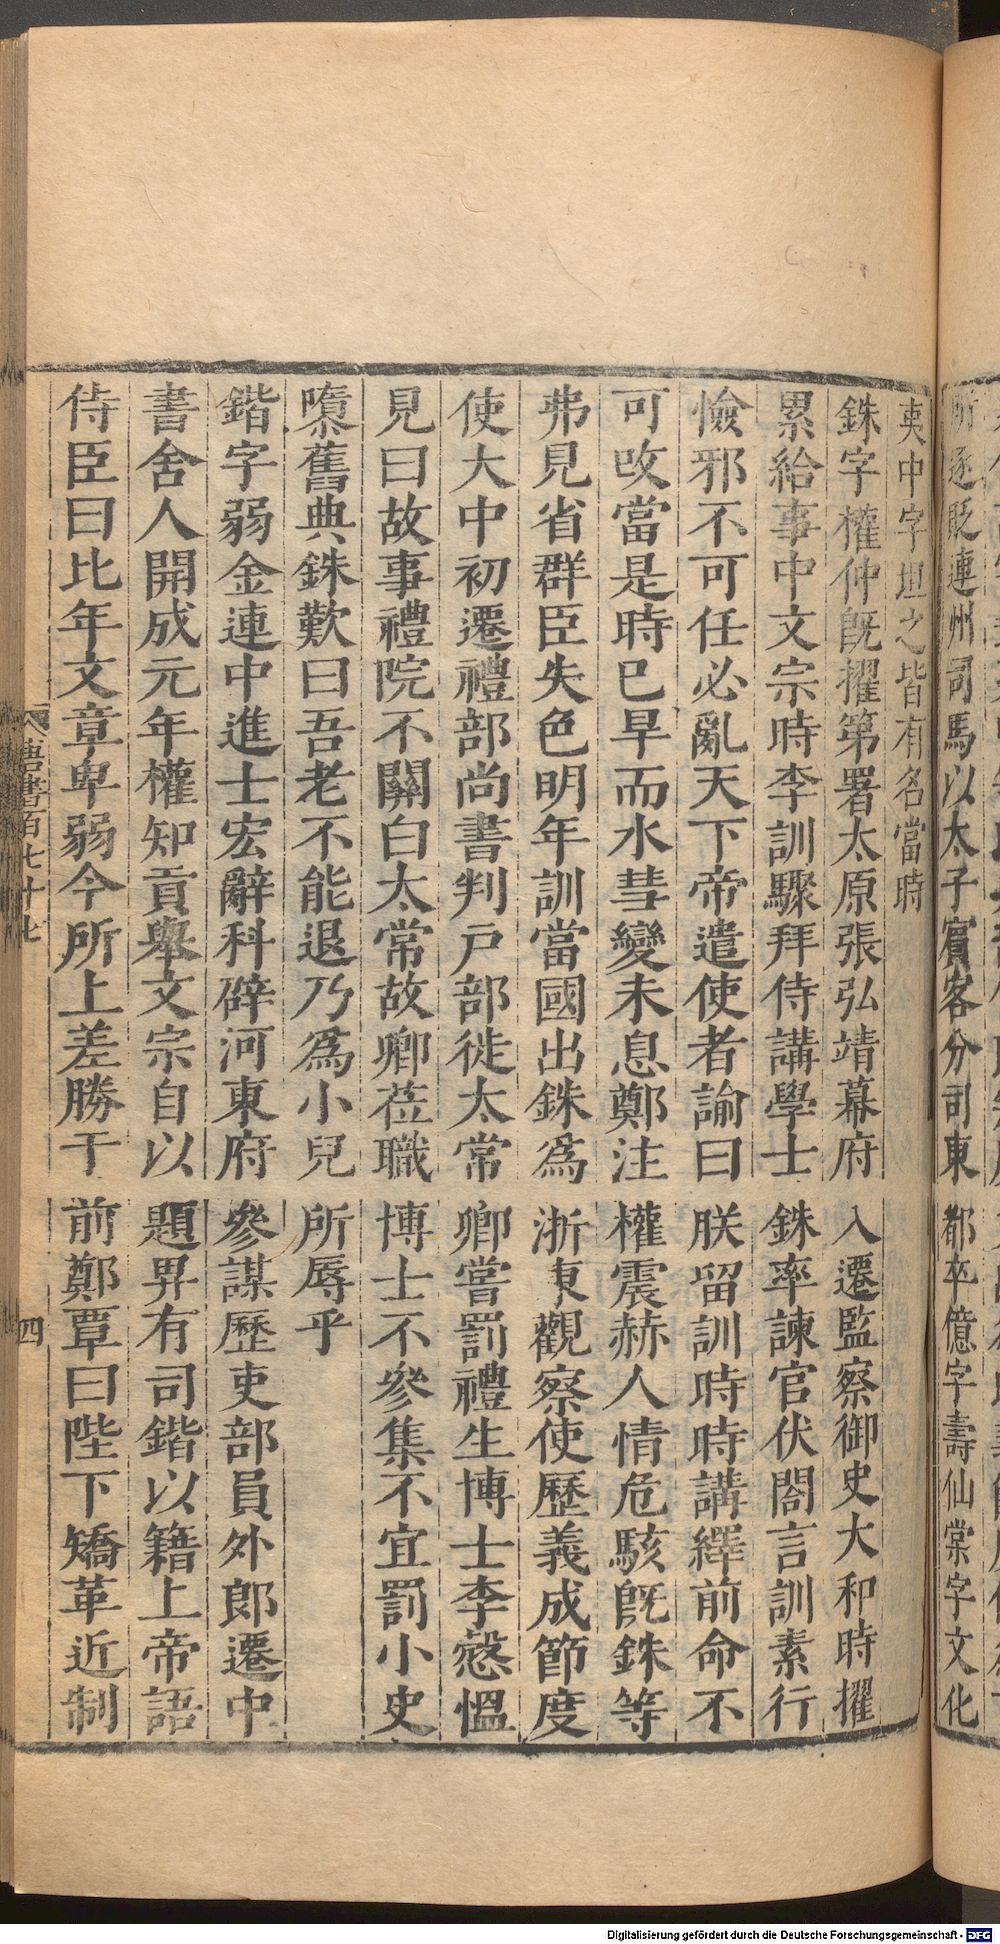 所逐貶連州司馬以太子賓客分司東都卒億字壽仙棠字文化
夷中字坦之皆有名當時
銖字權仲旣擢第署太原張弘靖幕府入遷監察御史大和時擢
累給事中文宗時李訓驟拜侍講學士銖率諫官伏閤言訓素行
憸邪不可任必亂天下帝遣使者諭曰朕留訓時時講繹前命不
可攺當是時巳旱而水彗變未息鄭注權震赫人情危駭旣銖等
弗見省群臣失色明年訓當國出銖爲浙東觀察使歷義成節度
使大中初遷禮部尚書判戸部徙太常卿嘗罰禮生博士李慤愠
見曰故事禮院不關白太常故卿莅職博士不參集不宜罰小史
隳舊典銖歎曰吾老不能退乃爲小兒所辱乎
鍇字弱金連中進士宏辭科辟河東府參謀歷吏部員外郎遷中
書舍人開成元年權知貢舉文宗自以題畀有司鍇以籍上帝語
侍臣曰比年文章卑弱今所上差勝于前鄭覃曰陛下矯革近制
唐書百七十七
四
Digitalisierung gefördert durch die Deutsche Forschungsgemeinschaft - DFG